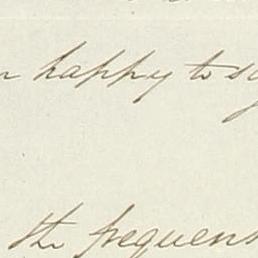 happy to
the frequens